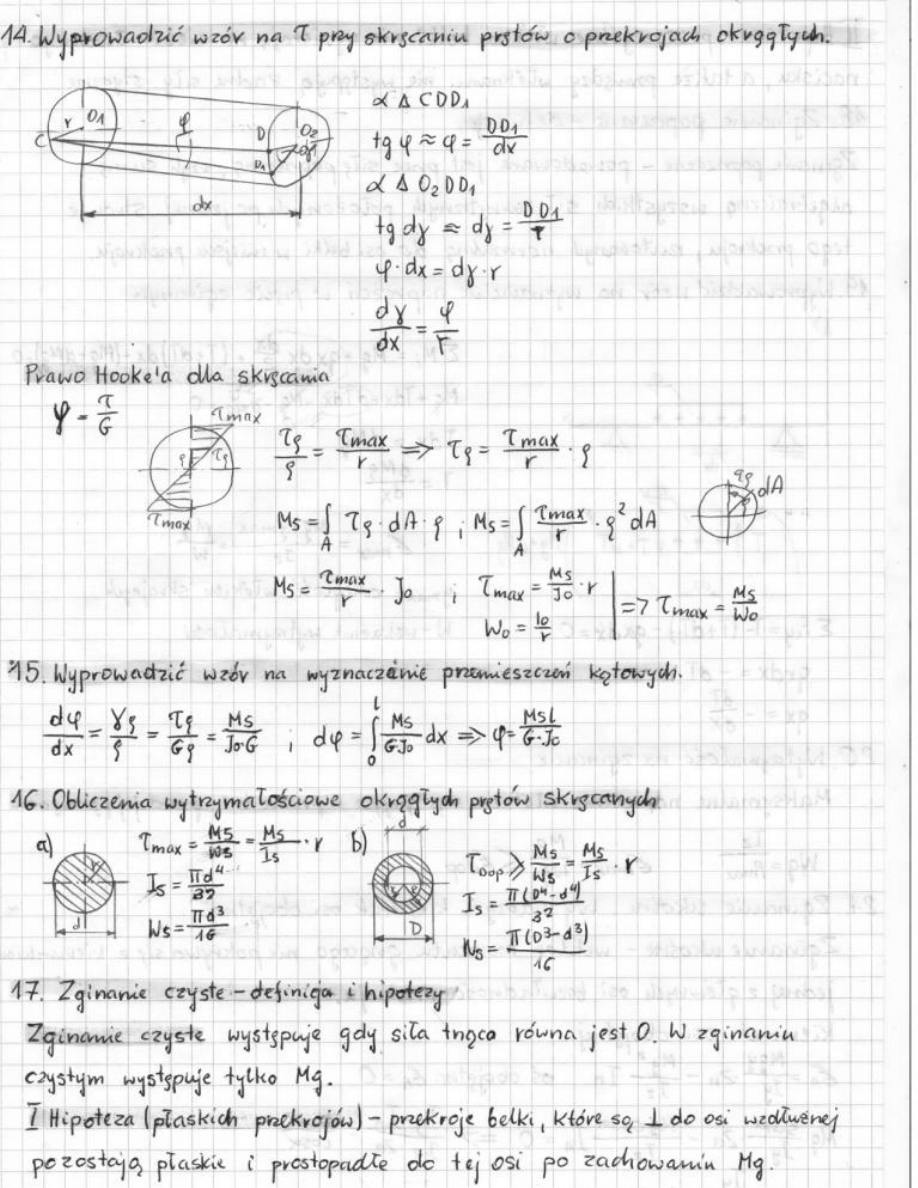 14. Wyprowadzić wzór na τ przy skręcaniu prętów o przekrojach okrągłych.
r O1 φ D O2 C D1 dγ
dx
z Δ CDD1
tg φ ≈ φ = DD1/dx
z Δ O2DD1
tg dγ ≈ dγ = DD1/r
φ · dx = dγ · r
dγ/dx = φ/r
Prawo Hooke'a dla skręcania
φ = τ/G
τmax ρ τρ τmax
τρ/ρ = τmax/r => τρ = τmax/r · ρ
Ms = ∫A τρ · dA · ρ ; Ms = ∫A τmax/r · ρ² dA
dA
Ms = τmax/r · Jo ; τmax = Ms/Jo · r
Wo = Io/r
=> τmax = Ms/Wo
15. Wyprowadzić wzór na wyznaczenie przemieszczeń kątowych.
dφ/dx = γρ/ρ = τρ/Gρ = Ms/Jo·G ; dφ = ∫0l Ms/G·Jo dx => φ = Msl/G·Jo
16. Obliczenia wytrzymałościowe okrągłych prętów skręcanych
a) r d
τmax = Ms/Ws = Ms/Is · r
Is = πd⁴/32
Ws = πd³/16
b) d D
τDOP ≥ Ms/Ws = Ms/Is · r
Is = π(D⁴-d⁴)/32
Ws = π(D³-d³)/16
17. Zginanie czyste - definicja i hipotezy
Zginanie czyste występuje gdy siła tnąca równa jest 0. W zginaniu
czystym występuje tylko Mg.
I Hipoteza (płaskich przekrojów) - przekroje belki, które są ⊥ do osi wzdłużnej
pozostają płaskie i prostopadłe do tej osi po zachowaniu Mg.